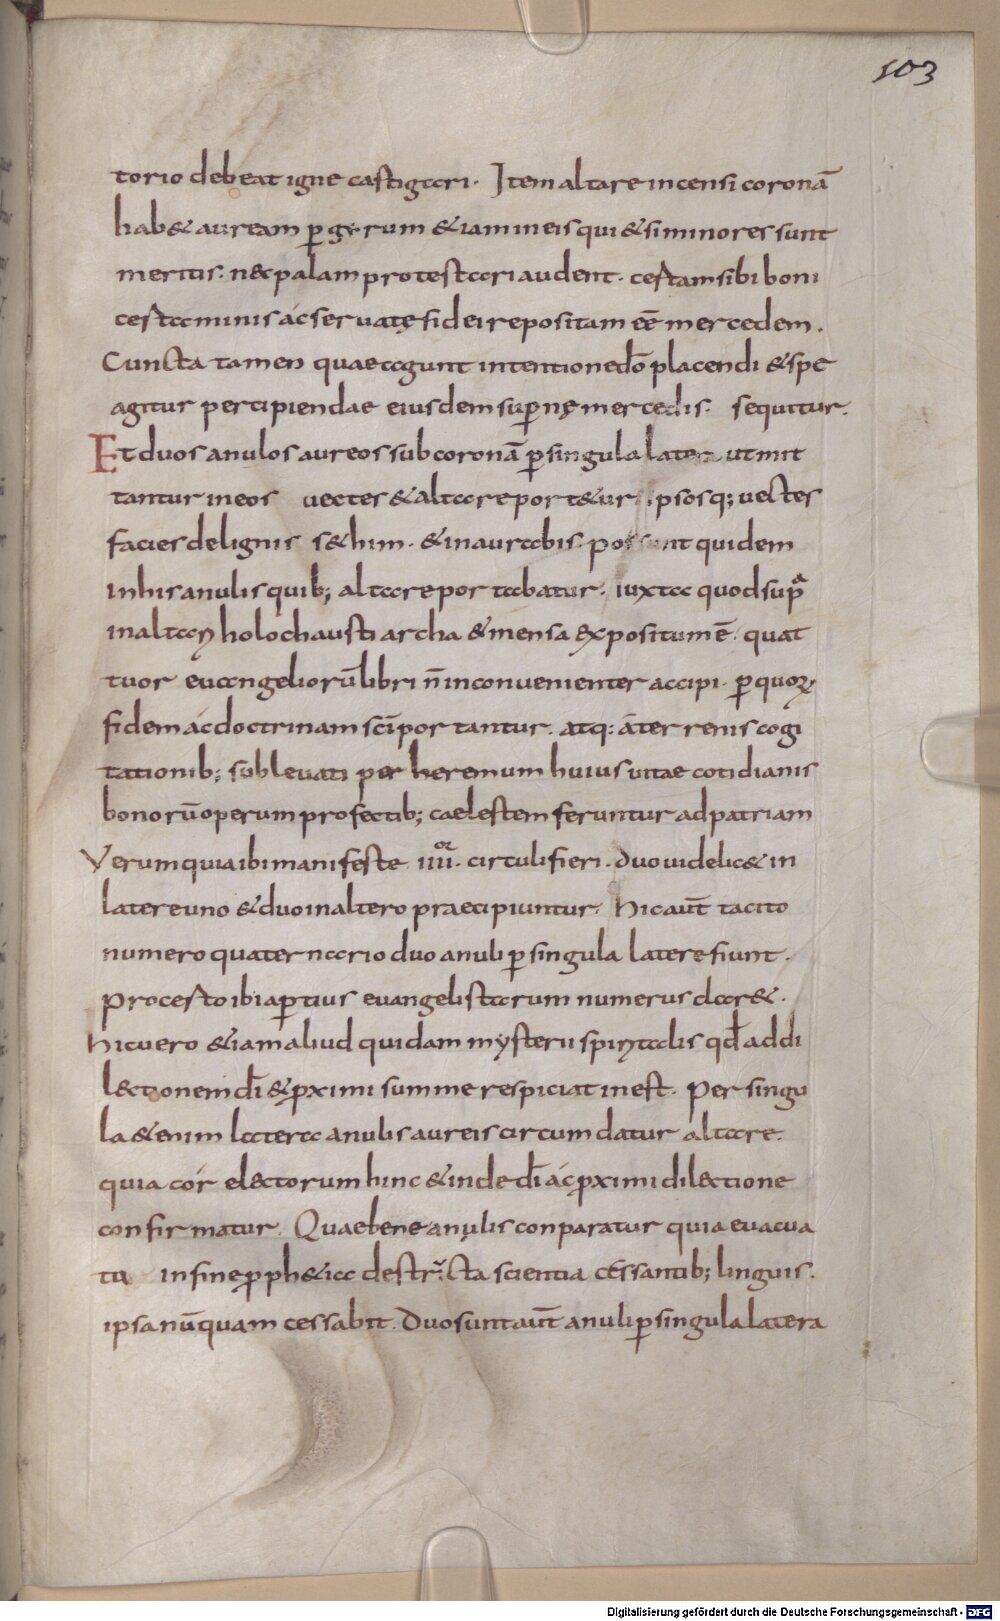 103
torio debeat igne castigari. Item altare incensi coronā
hab& auream p gyrum &iam in eis qui & si minores sunt
meritis. nec palam protestari audent. aestam sibi boni
aestominis ác servatę fidei repositam eē mercedem.
Cuncta tamen quae agunt intentione dō placendi & spe
agitur percipiendae eiusdem supernę mercedis. sequitur.
Et duos anulos aureos sub coronā p singula latera ut mit
tantur in eos vectes & altare port&ur. ipsosq; vectes
facies de lignis s&him. & inaurabis. possunt quidem
in his anulis quib; altare portabatur. iuxta quod supra
in altari holochausti archa & mensa expositum ē. quat
tuor evangeliorū libri n̄ inconvenienter accipi. p quorum
fidem ác doctrinam scī portantur. atq: áterrenis cogi
tationib; sublevati per heremum huius vitae cotidianis
bonorū operum profectib; caelestem feruntur ad patriam
Verum quia ibi manifeste iiiior. circuli fieri. duo videlic& in
latere uno & duo in altero praecipiuntur. hic aūt tacito
numero quaternario duo anuli p singula latere fiunt.
Procesto ibi apertius evangelistarum numerus dar&.
hic vero &iam aliud quidam mysterii spiritalis qđ ad di
lectionem dī & pximi summe respiciat inest. Per singu
la &enim latera anulis aureis circumdatur altare.
quia cór electorum hinc & inde dī ác pximi dilectione
confirmatur. Quae bene anulis conparatur quia evacua
ta in fine proph&ia destructa scientia cessantib; linguis.
ipsa nūquam cessabit. Duo sunt aūt anuli p singula latera
Digitalisierung gefördert durch die Deutsche Forschungsgemeinschaft - DFG